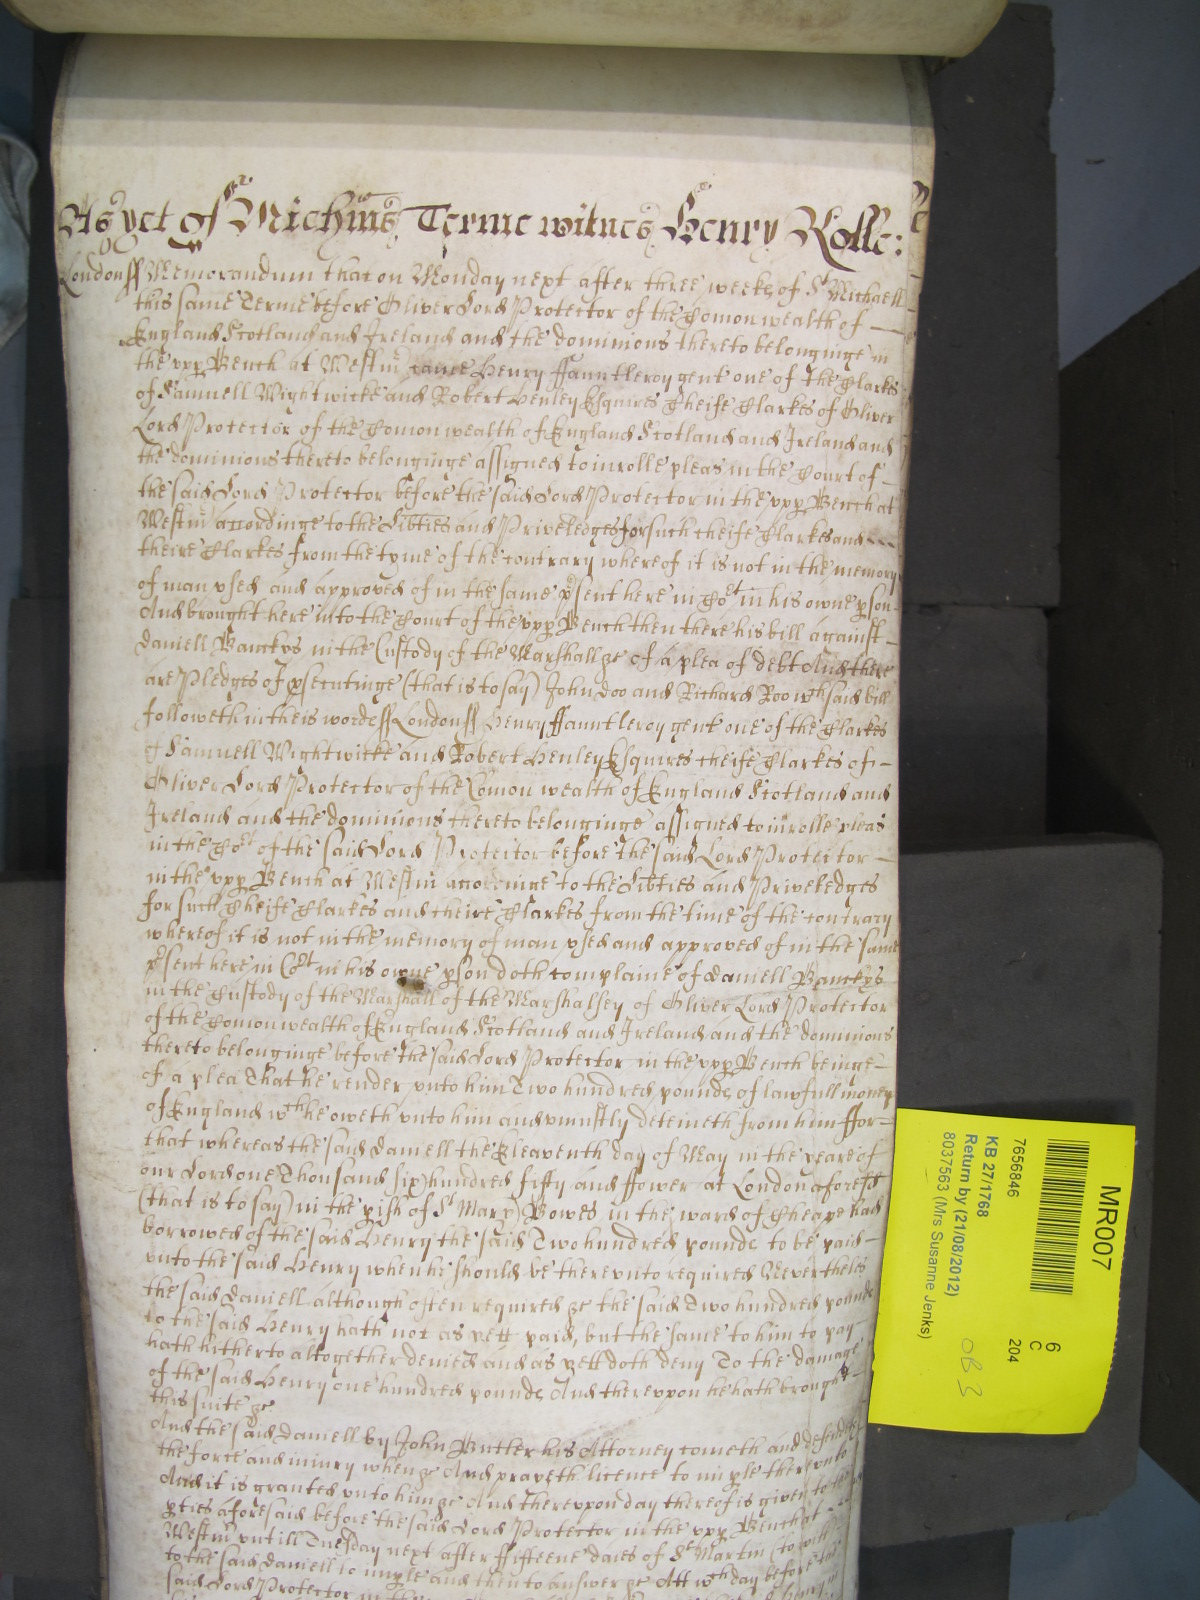 As yet of Michīas Terme witnes Henry Rolle:
London ss Memorandum that on Monday next after three weekes of St Michaell
this same Terme before Oliver Lord Protector of the Comon wealth of
England Scotland and Ireland and the dominions thereto belonginge in
the vpp Bench at Westm̄ came Henry ffauntleroy gent one of the Clarkes
of Samuell Wightwicke and Robert Henley Esquires Cheife Clarkes of Oliver
Lord Protector of the Comon wealth of England Scotland and Ireland and
the dominions thereto belonginge assigned to inrolle pleas in the Court of
the said Lord Protector before the said Lord Protector in the vpp Bench at
Westm̄ accordinge to the Libties and Priveledges for such cheife Clarkes and
theire Clarkes from the tyme of the contrary whereof it is not in the memory
of man vsed and approved of in the same psent here in Cot in his owne pson
And brought here into the Court of the vpp Bench then there his bill against
daniell Banckes in the Custody of the Marshall &c of a plea of debt And there
are Pledges of psecutinge (that is to say) John Doo and Richard Roo wch said bill
followeth in theis wordes ss London ss Henry ffauntleroy gent one of the Clarkes
of Samuell Wightwicke and Robert Henley Esquires cheife Clarkes of
Oliver Lord Protector of the Comon wealth of England Scotland and
Ireland and the dominions thereto belonginge assigned to inrolle pleas
in the Cot of the said Lord Protector before the said Lord Protector
in the vpp Bench at Westm̄ accordinge to the Libties and Priveledges
for such Cheife Clarkes and theire Clarkes from the time of the contrary
whereof it is not in the memory of man vsed and approved of in the same
psent here in Cot in his owne pson doth complaine of daniell Banckes
in the Custody of the Marshall of the Marshalsey of Oliver Lord Protector
of the Comon wealth of England Scotland and Ireland and the dominions
thereto belonginge before the said Lord Protector in the vpp Bench beinge
of a plea That he render vnto him Two hundred pounds of lawfull money
of England wch he oweth vnto him and vniustly deteineth from him ffor
that whereas the said daniell the Eleaventh day of May in the yeare of
our Lord one Thousand six hundred fifty and ffower at London aforesd
(that is to say) in the pish of St Mary Bowes in the ward of Cheape had
borrowed of the said Henry the said Two hundred pounds to be paid
vnto the said Henry when he should be therevnto required Nevertheles
the said daniell although often required &c the said Two hundred pounds
to the said Henry hath not as yett paid, but the same to him to pay
hath hitherto altogether denied and as yett doth deny To the damage
of the said Henry one hundred pounds And therevpon he hath brought
this suite &c
And the said daniell by John Butler his Attorney cometh and defendeth
the force and iniury when &c And prayeth licence to imple therevnto
And it is granted vnto him &c And therevpon day thereof is given to the
pties aforesaid before the said Lord Protector in the vpp Bench at
Westm̄ vntill Tuesday next after ffifteene daies of St Martin (to witt)
to the said daniell to imple and then to answer &c Att wch day before the
said Lord Protector
MR007
6
C
204
7656846
KB 27/1768
Return by (21/08/2012)
8037563 (Mrs Susanne Jenks)
OB 3